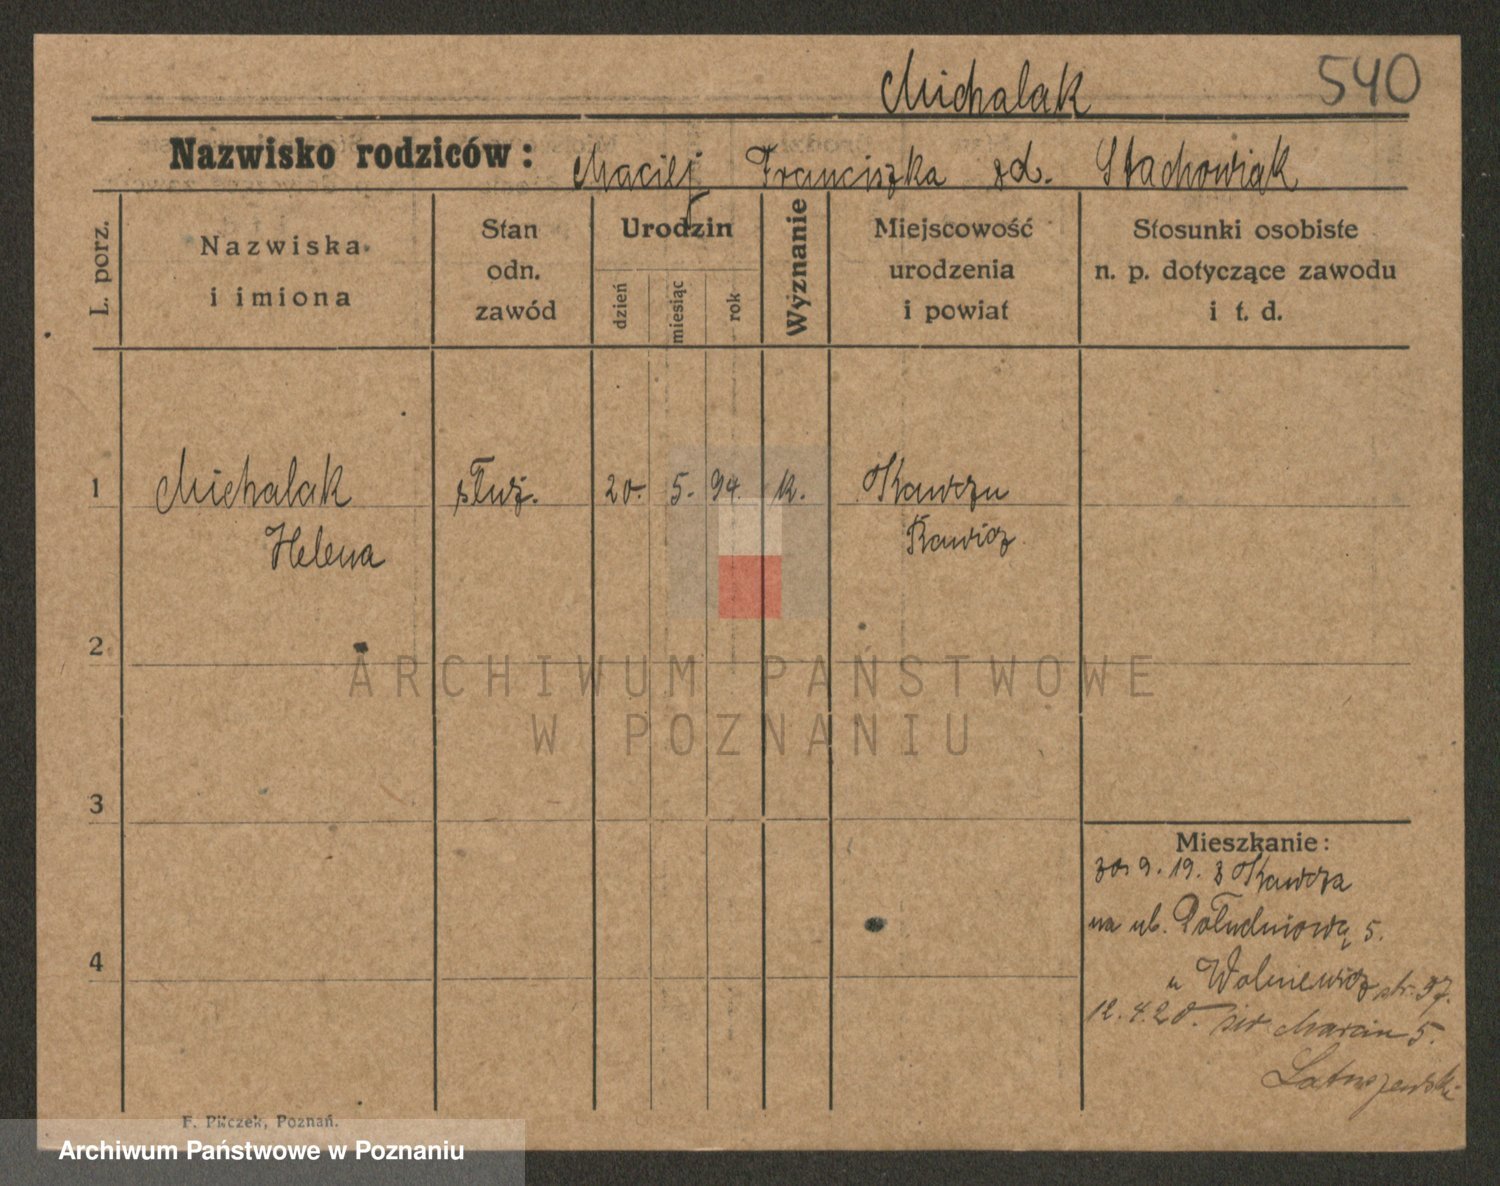 Michalak 540
Nazwisko rodziców: Maciej Franciszka zd. Stachowiak
L. porz.
Nazwiska i imiona
Stan odn. zawód
Urodzin
dzień
miesiąc
rok
Wyznanie
Miejscowość urodzenia i powiat
Stosunki osobiste n. p. dotyczące zawodu i t. d.
1 Michalak służ. 20. 5. 94. k. Kawczu
Helena Rawicz
2
ARCHIWUM PAŃSTWOWE
W POZNANIU
3
Mieszkanie:
9. 19. z Kawcza
na ul. Południową 5.
4
u Wolniewicz str. 37.
12. 4. 20. św Marcin 5.
F. Pilczek, Poznań.
Archiwum Państwowe w Poznaniu